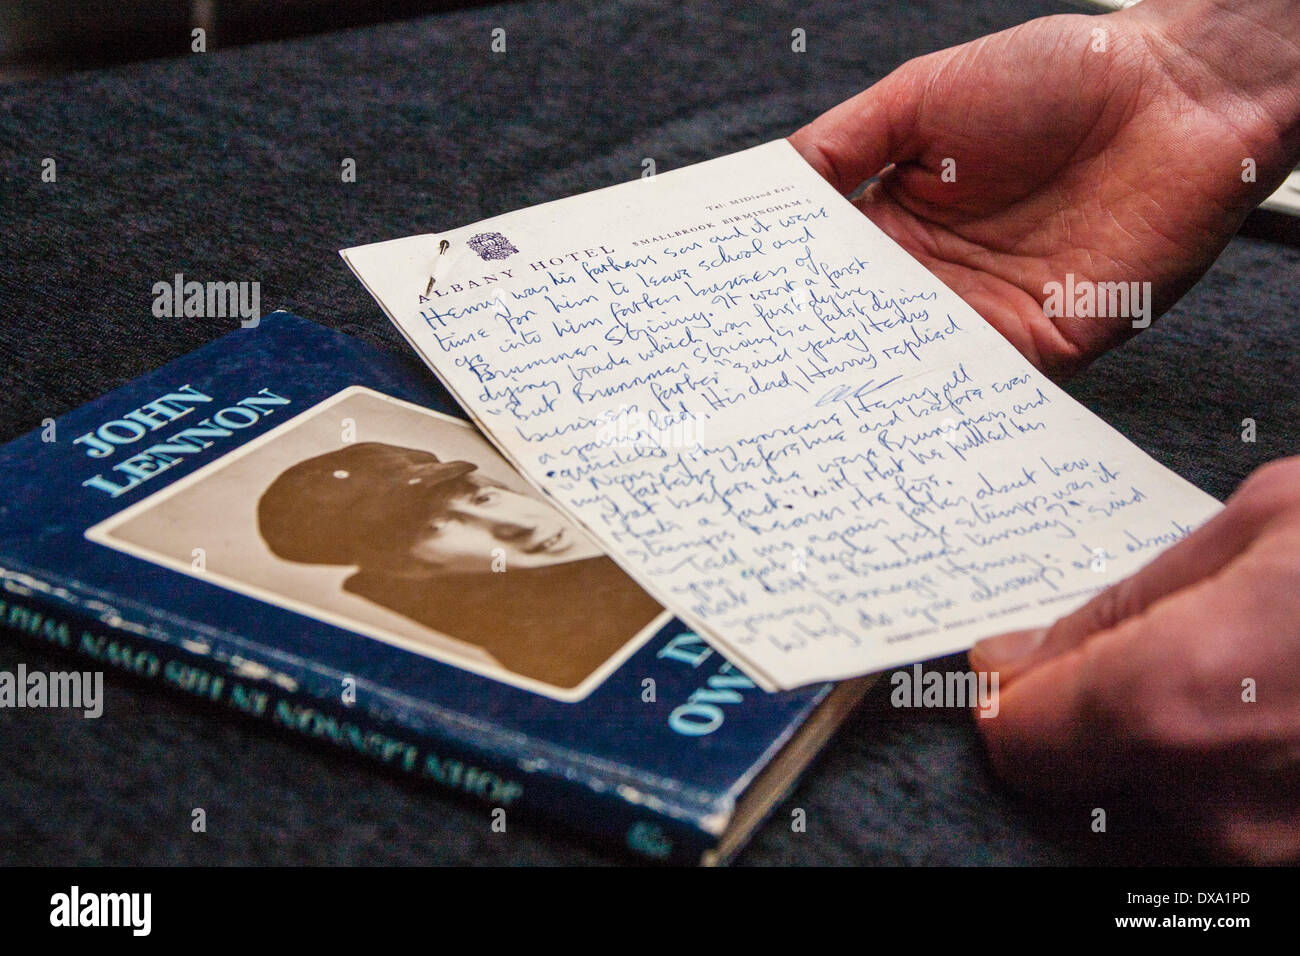 Tel: MIDland
ALBANY HOTEL SMALLBROOK BIRMINGHAM 5
Henry was his fathers son and it were
time for him to leave school and
go into him father business of
Brummer Striving. It wert a farst
dying trade which was fast dying.
"But Brummer Striving is a farst dying
business father" said young Henry
a young lad. His dad, Harry replied
quickly
"None of thy nonsense Henry, all
my fathers before me and before even
that before me were Brummers and
thats a fact" With that he pulled his
stumps nearer the fire.
"Tell us again father about how
you got those stumps was it
"Why do you always ask
said
Henry.
JOHN
LENNON
IN
OW
JOHN LENNON IN HIS OWN WRIT
alamy
Image ID: DXA1PD
www.alamy.com